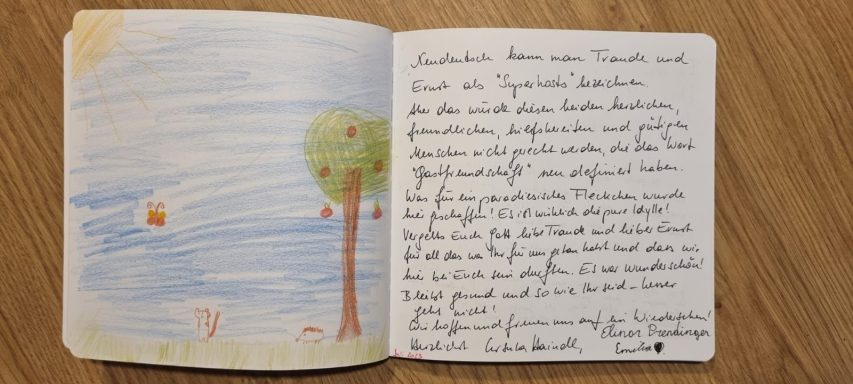 Neudeutsch kann man Traude und
Ernst als "Superhosts" bezeichnen.
Aber das würde diesen beiden herzlichen,
freundlichen, hilfsbereiten und gütigen
Menschen nicht gerecht werden, die das Wort
"Gastfreundschaft" neu definiert haben.
Was für ein paradiesisches Fleckchen wurde
hier geschaffen! Es ist wirklich die pure Idylle!
Vergelts Euch Gott liebe Traude und lieber Ernst
für all das was Ihr für uns getan habt und dass wir
hier bei Euch sein durften. Es war wunderschön!
Bleibt gesund und so wie Ihr seid - besser
geht nicht!
Wir hoffen und freuen uns auf ein Wiedersehen!
Herzlichst Ursula Haindl, Elinor
Emilia